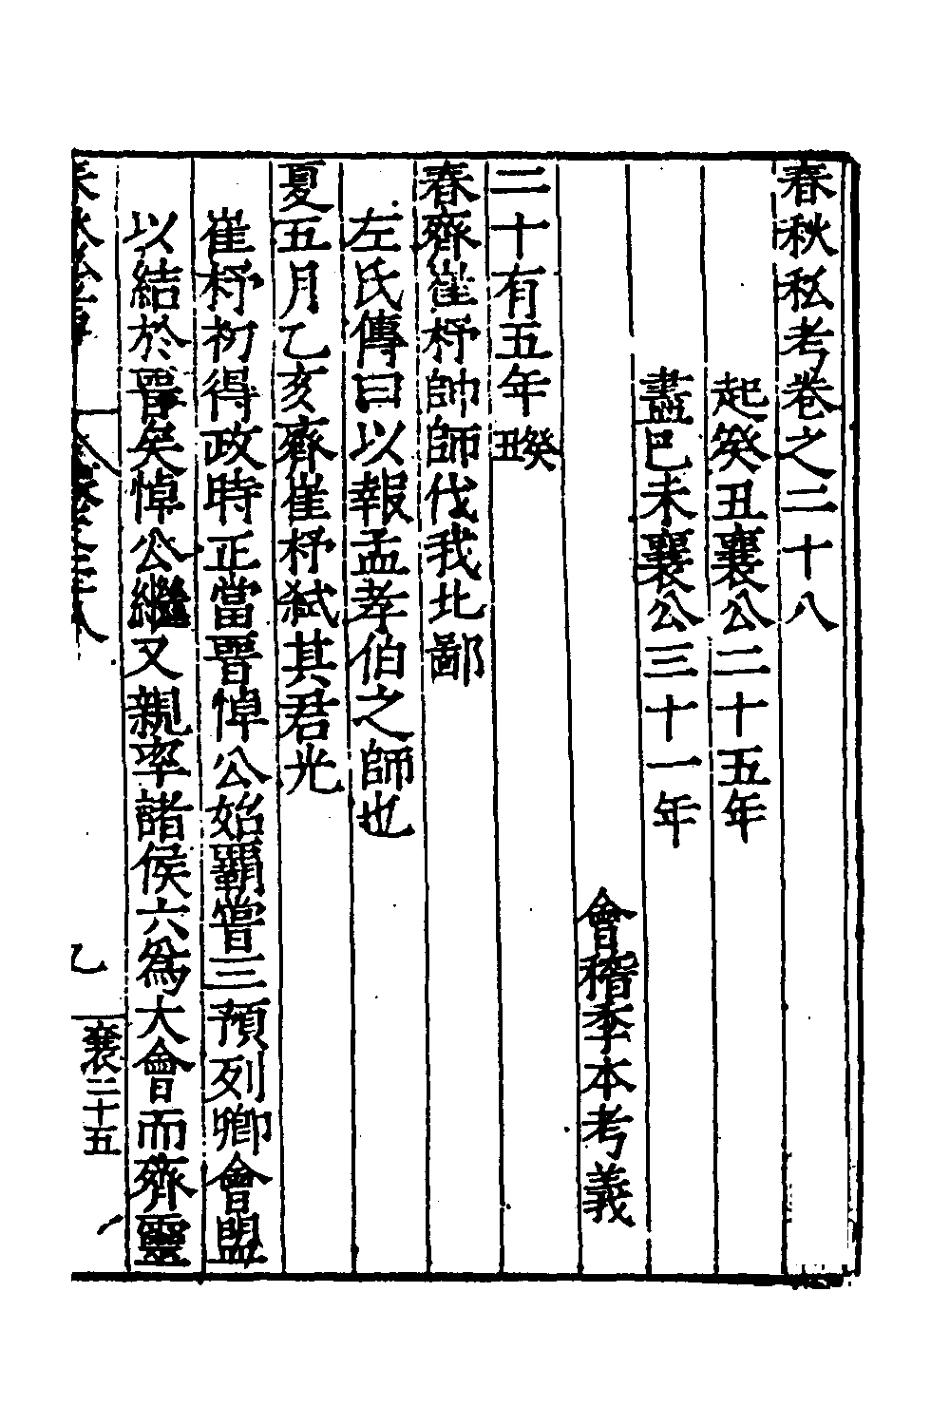 春秋私考卷之二十八
起癸丑襄公二十五年
盡巳未襄公三十一年
會稽季本考義
二十有五年癸丑
春齊崔杼帥師伐我北鄙
左氏傳曰以報孟孝伯之師也
夏五月乙亥齊崔杼弒其君光
崔杼初得政時正當晉悼公始霸嘗三預列卿會盟
以結於晉矣悼公繼又親率諸侯六爲大會而齊靈
襄二十五